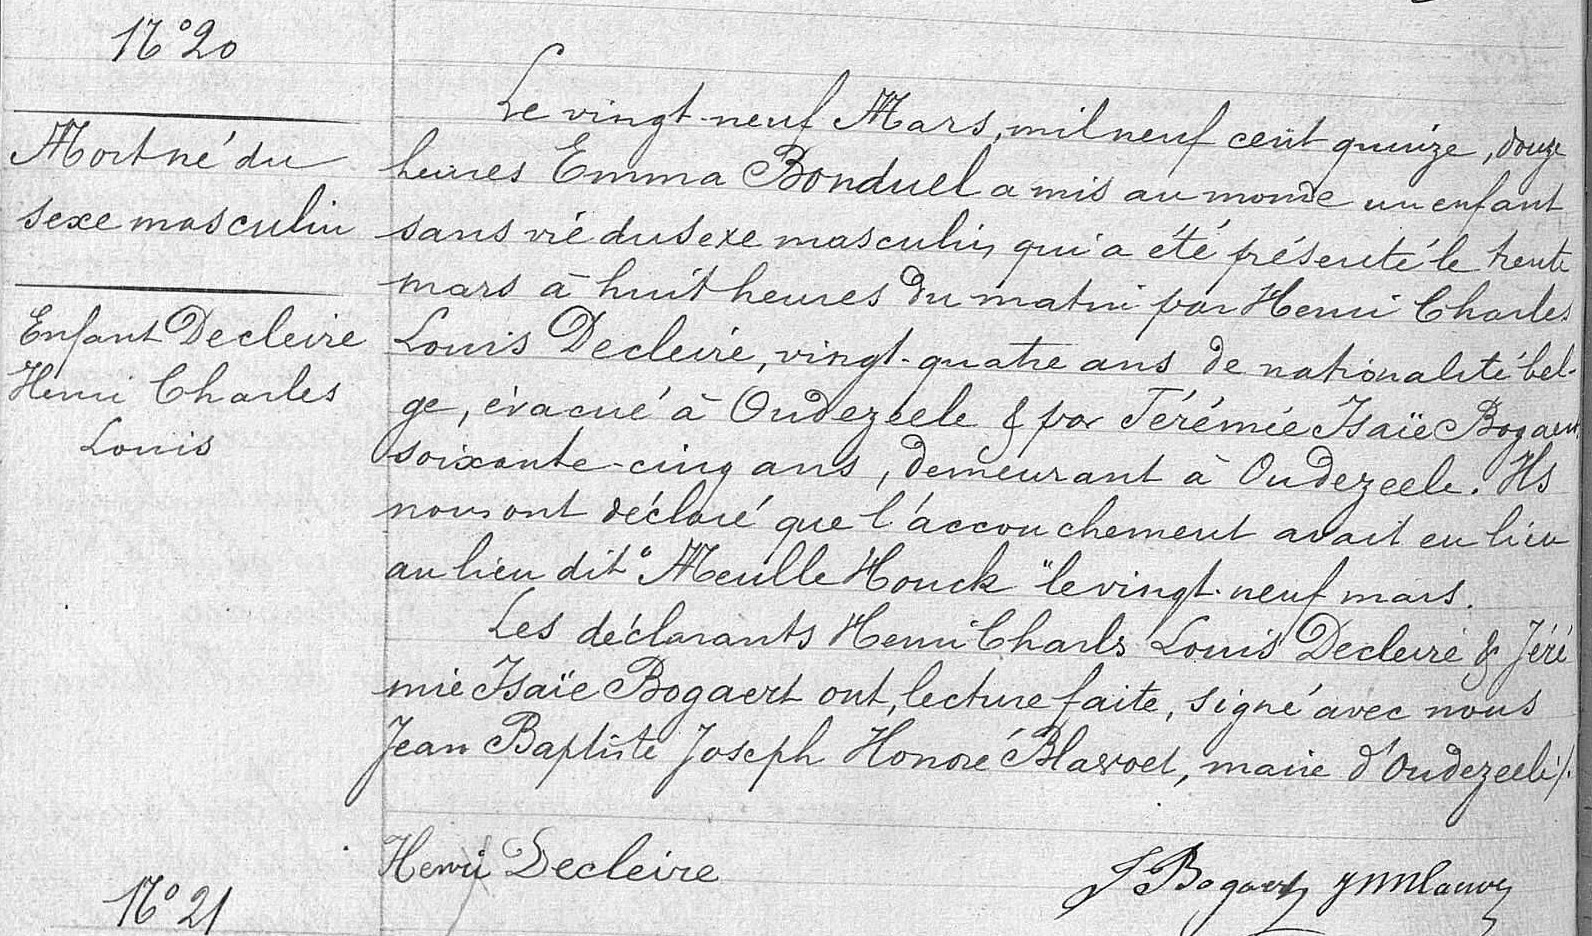 N° 20
Mort né du
sexe masculin
Enfant Decleire
Henri Charles
Louis
Le vingt-neuf Mars, mil neuf cent quinze, douze
heures Emma Bonduel a mis au monde un enfant
sans vie du sexe masculin, qui a été présenté le trente
mars à huit heures du matin par Henri Charles
Louis Decleire, vingt-quatre ans de nationalité bel-
ge, évacué à Oudezeele & par Jérémie Isaïe Bogaert
soixante-cinq ans, demeurant à Oudezeele. Ils
nous ont déclaré que l'accouchement avait eu lieu
au lieu dit "Meulle Houck" le vingt-neuf mars.
Les déclarants Henri Charles Louis Decleire & Jéré
mie Isaïe Bogaert ont, lecture faite, signé avec nous
Jean Baptiste Joseph Honoré Blasvoet, maire d'Oudezeele /.
Henri Decleire
J Bogaert
N° 21